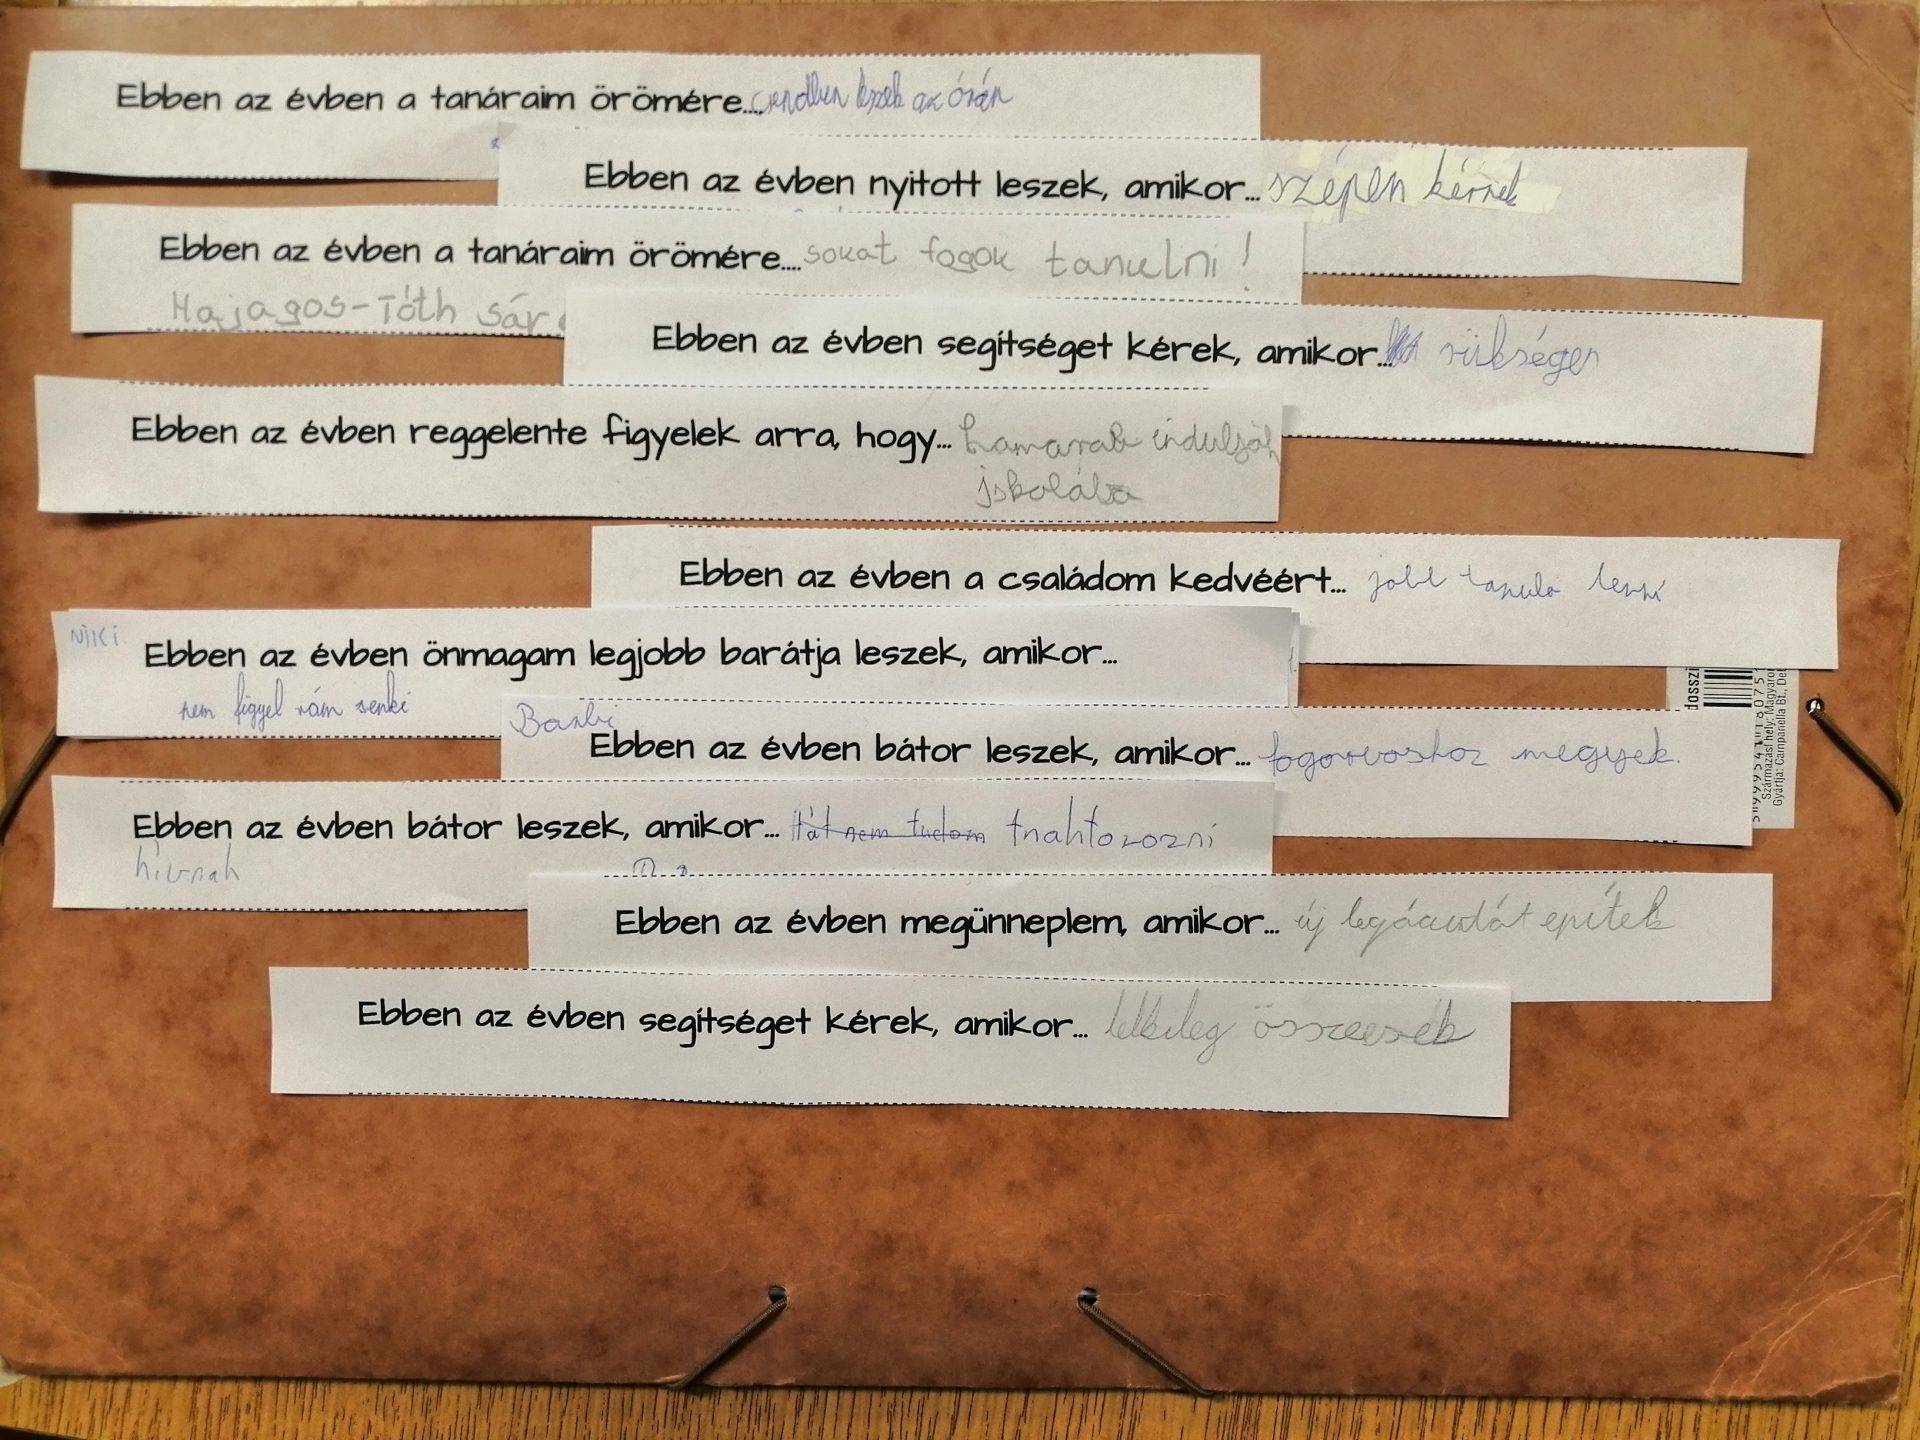 Ebben az évben a tanáraim örömére.... csendben leszek az órán
Ebben az évben nyitott leszek, amikor... szépen kérnek
Ebben az évben a tanáraim örömére.... sokat fogok tanulni!
Hajagos-Tóth Sár
Ebben az évben segítséget kérek, amikor...
Ebben az évben reggelente figyelek arra, hogy... hamarab induljak
iskolába
Ebben az évben a családom kedvéért... jobb tanuló lenni
NiKi
Ebben az évben önmagam legjobb barátja leszek, amikor...
nem figyel rám senki
Barbi
Ebben az évben bátor leszek, amikor... fogorvoshoz megyek.
Ebben az évben bátor leszek, amikor... Hát nem tudom
hívnak
Ebben az évben megünneplem, amikor... új építek
Ebben az évben segítséget kérek, amikor... lelkileg összeesek
Származási hely: Magyaror
Gyártja: Campanella Bt., De